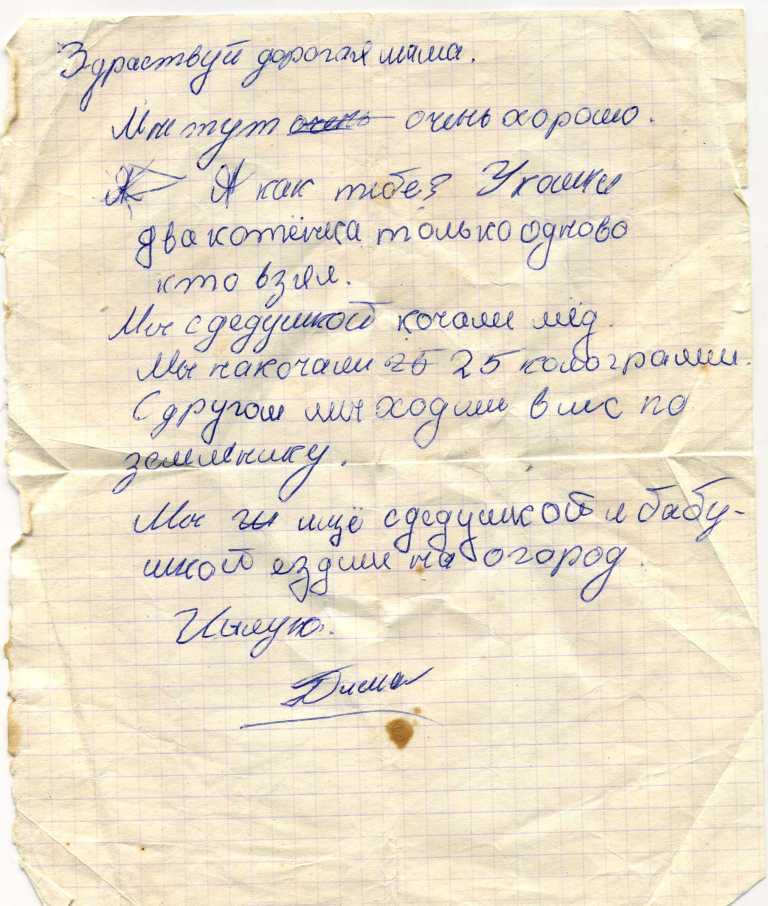 Здраствуй дорогая мама.
Мне тут очень очень хорошо.
Я А как тебе? У кошки
два котёнка только одново
кто взял.
Мы с дедушкой качали мёд.
Мы накочали 25 25 колограмм.
С другом мы ходили в лес по
землянику.
Мы ищё с дедушкой и бабу-
шкой ездили на огород.
Цылую.
Дима